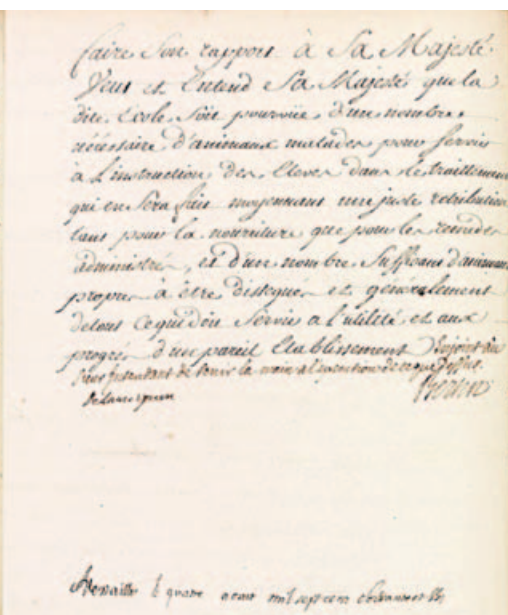 faire Son rapport à Sa Majesté
Veut et Entend Sa Majesté que la
dite Ecole Soit pourvüe d'un nombre
nécéssaire d'animaux malades pour Servir
à L'instruction Des Eleves Dans le traittement
qui en Sera fait moyennant une juste retribution
tant pour la nourriture que pour les remedes
administrés, et d'un nombre Suffisant d'animaux
propres à être disseques et généralement
de tout ce qui doit Servir a l'utilité et aux
progrès d'un pareil Etablissement Enjoint au
Sieur Intendant de tenir la main a l'execution de ce que dessus.
Bertin
Versailles le quatre aoust mil sept cent soixante